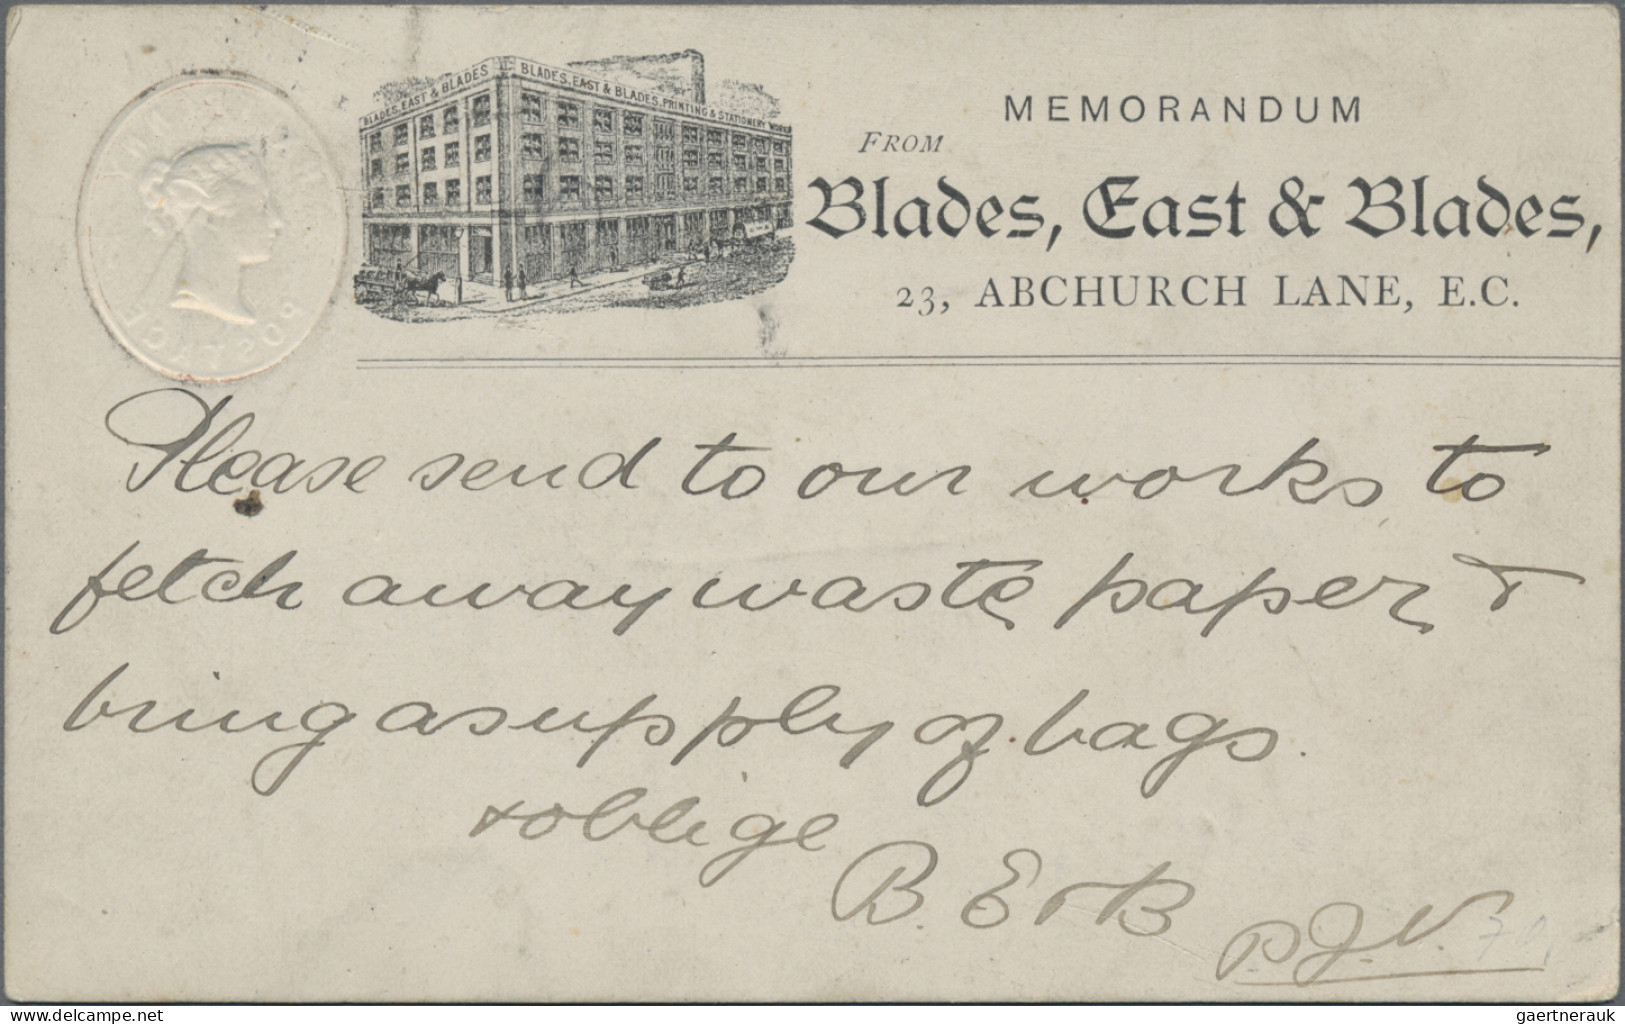 BLADES, EAST & BLADES
BLADES, EAST & BLADES, PRINTING & STATIONERY WORKS
MEMORANDUM
FROM
Blades, East & Blades,
23, ABCHURCH LANE, E.C.
POSTAGE
Please send to our works to
fetch away waste paper &
bring a supply of bags.
& oblige
B. E & B
P.J.V.
delcampe.net
gaertnerauk